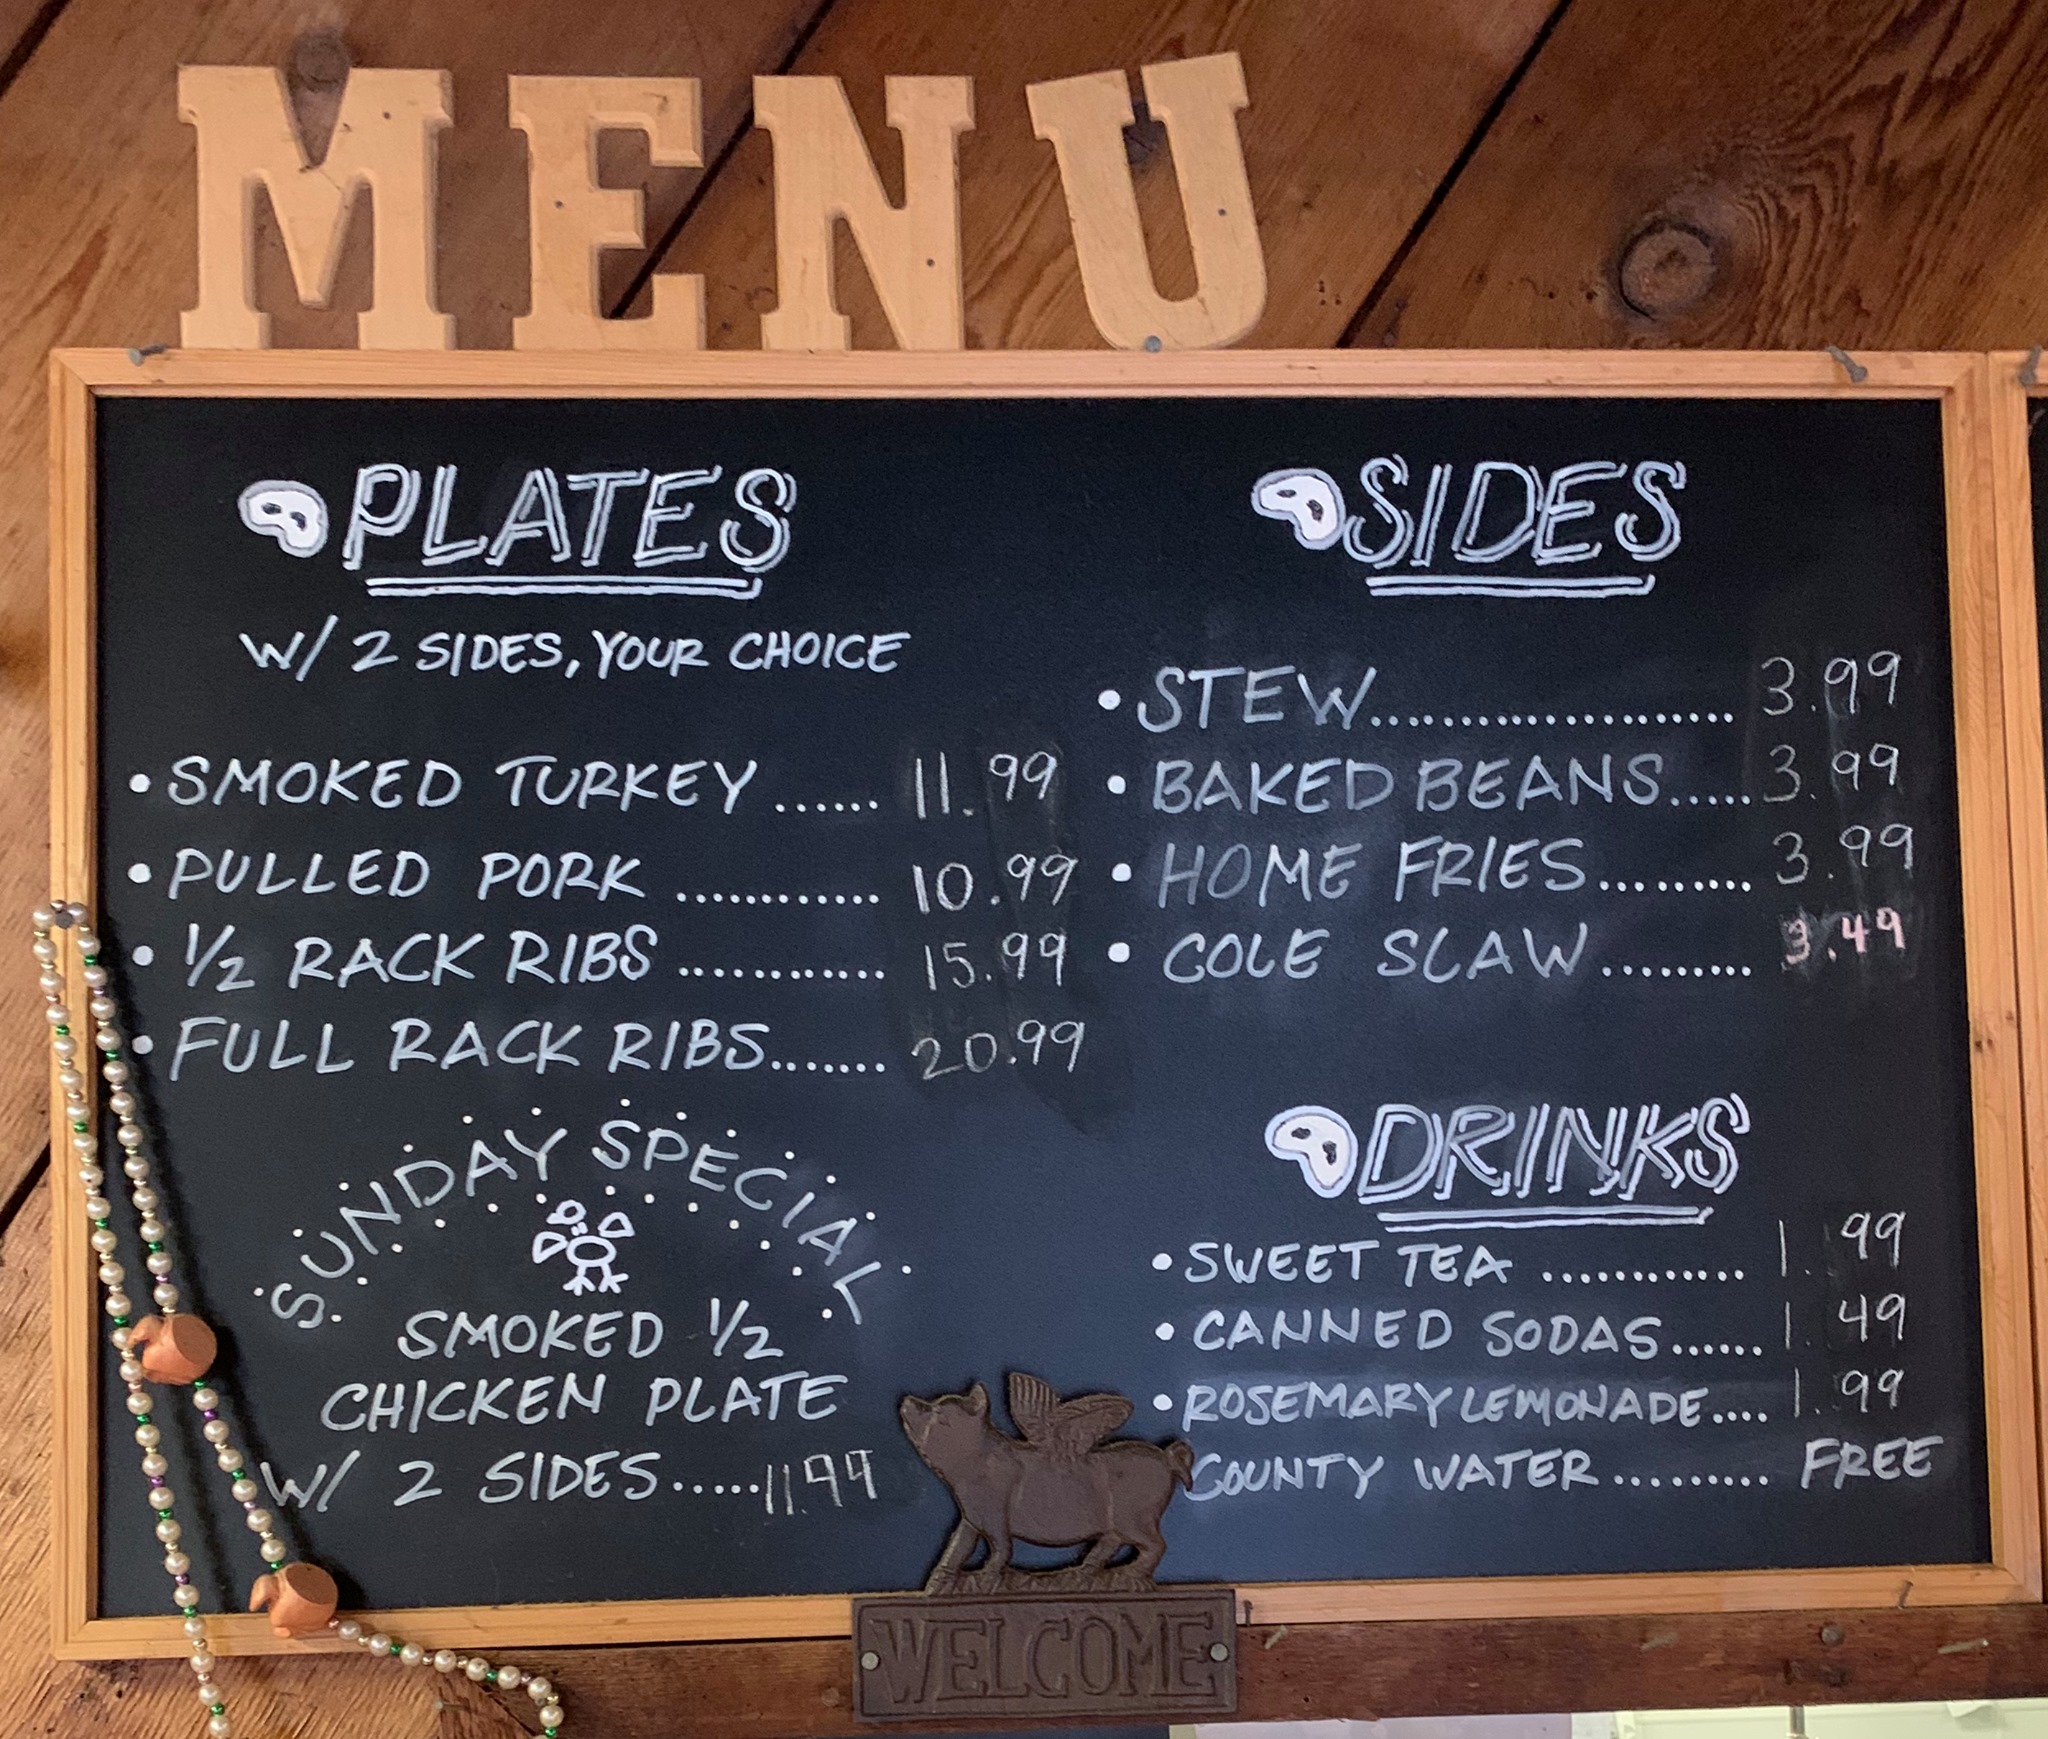 MENU
PLATES
W/ 2 SIDES, YOUR CHOICE
• SMOKED TURKEY ...... 11.99
• PULLED PORK ............ 10.99
• 1/2 RACK RIBS ............ 15.99
• FULL RACK RIBS....... 20.99
SUNDAY SPECIAL
SMOKED 1/2
CHICKEN PLATE
W/ 2 SIDES.....11.99
SIDES
• STEW..................... 3.99
• BAKED BEANS..... 3.99
• HOME FRIES......... 3.99
• COLE SLAW......... 3.49
DRINKS
• SWEET TEA ............ 1.99
• CANNED SODAS...... 1.49
• ROSEMARY LEMONADE.... 1.99
COUNTY WATER ......... FREE
WELCOME